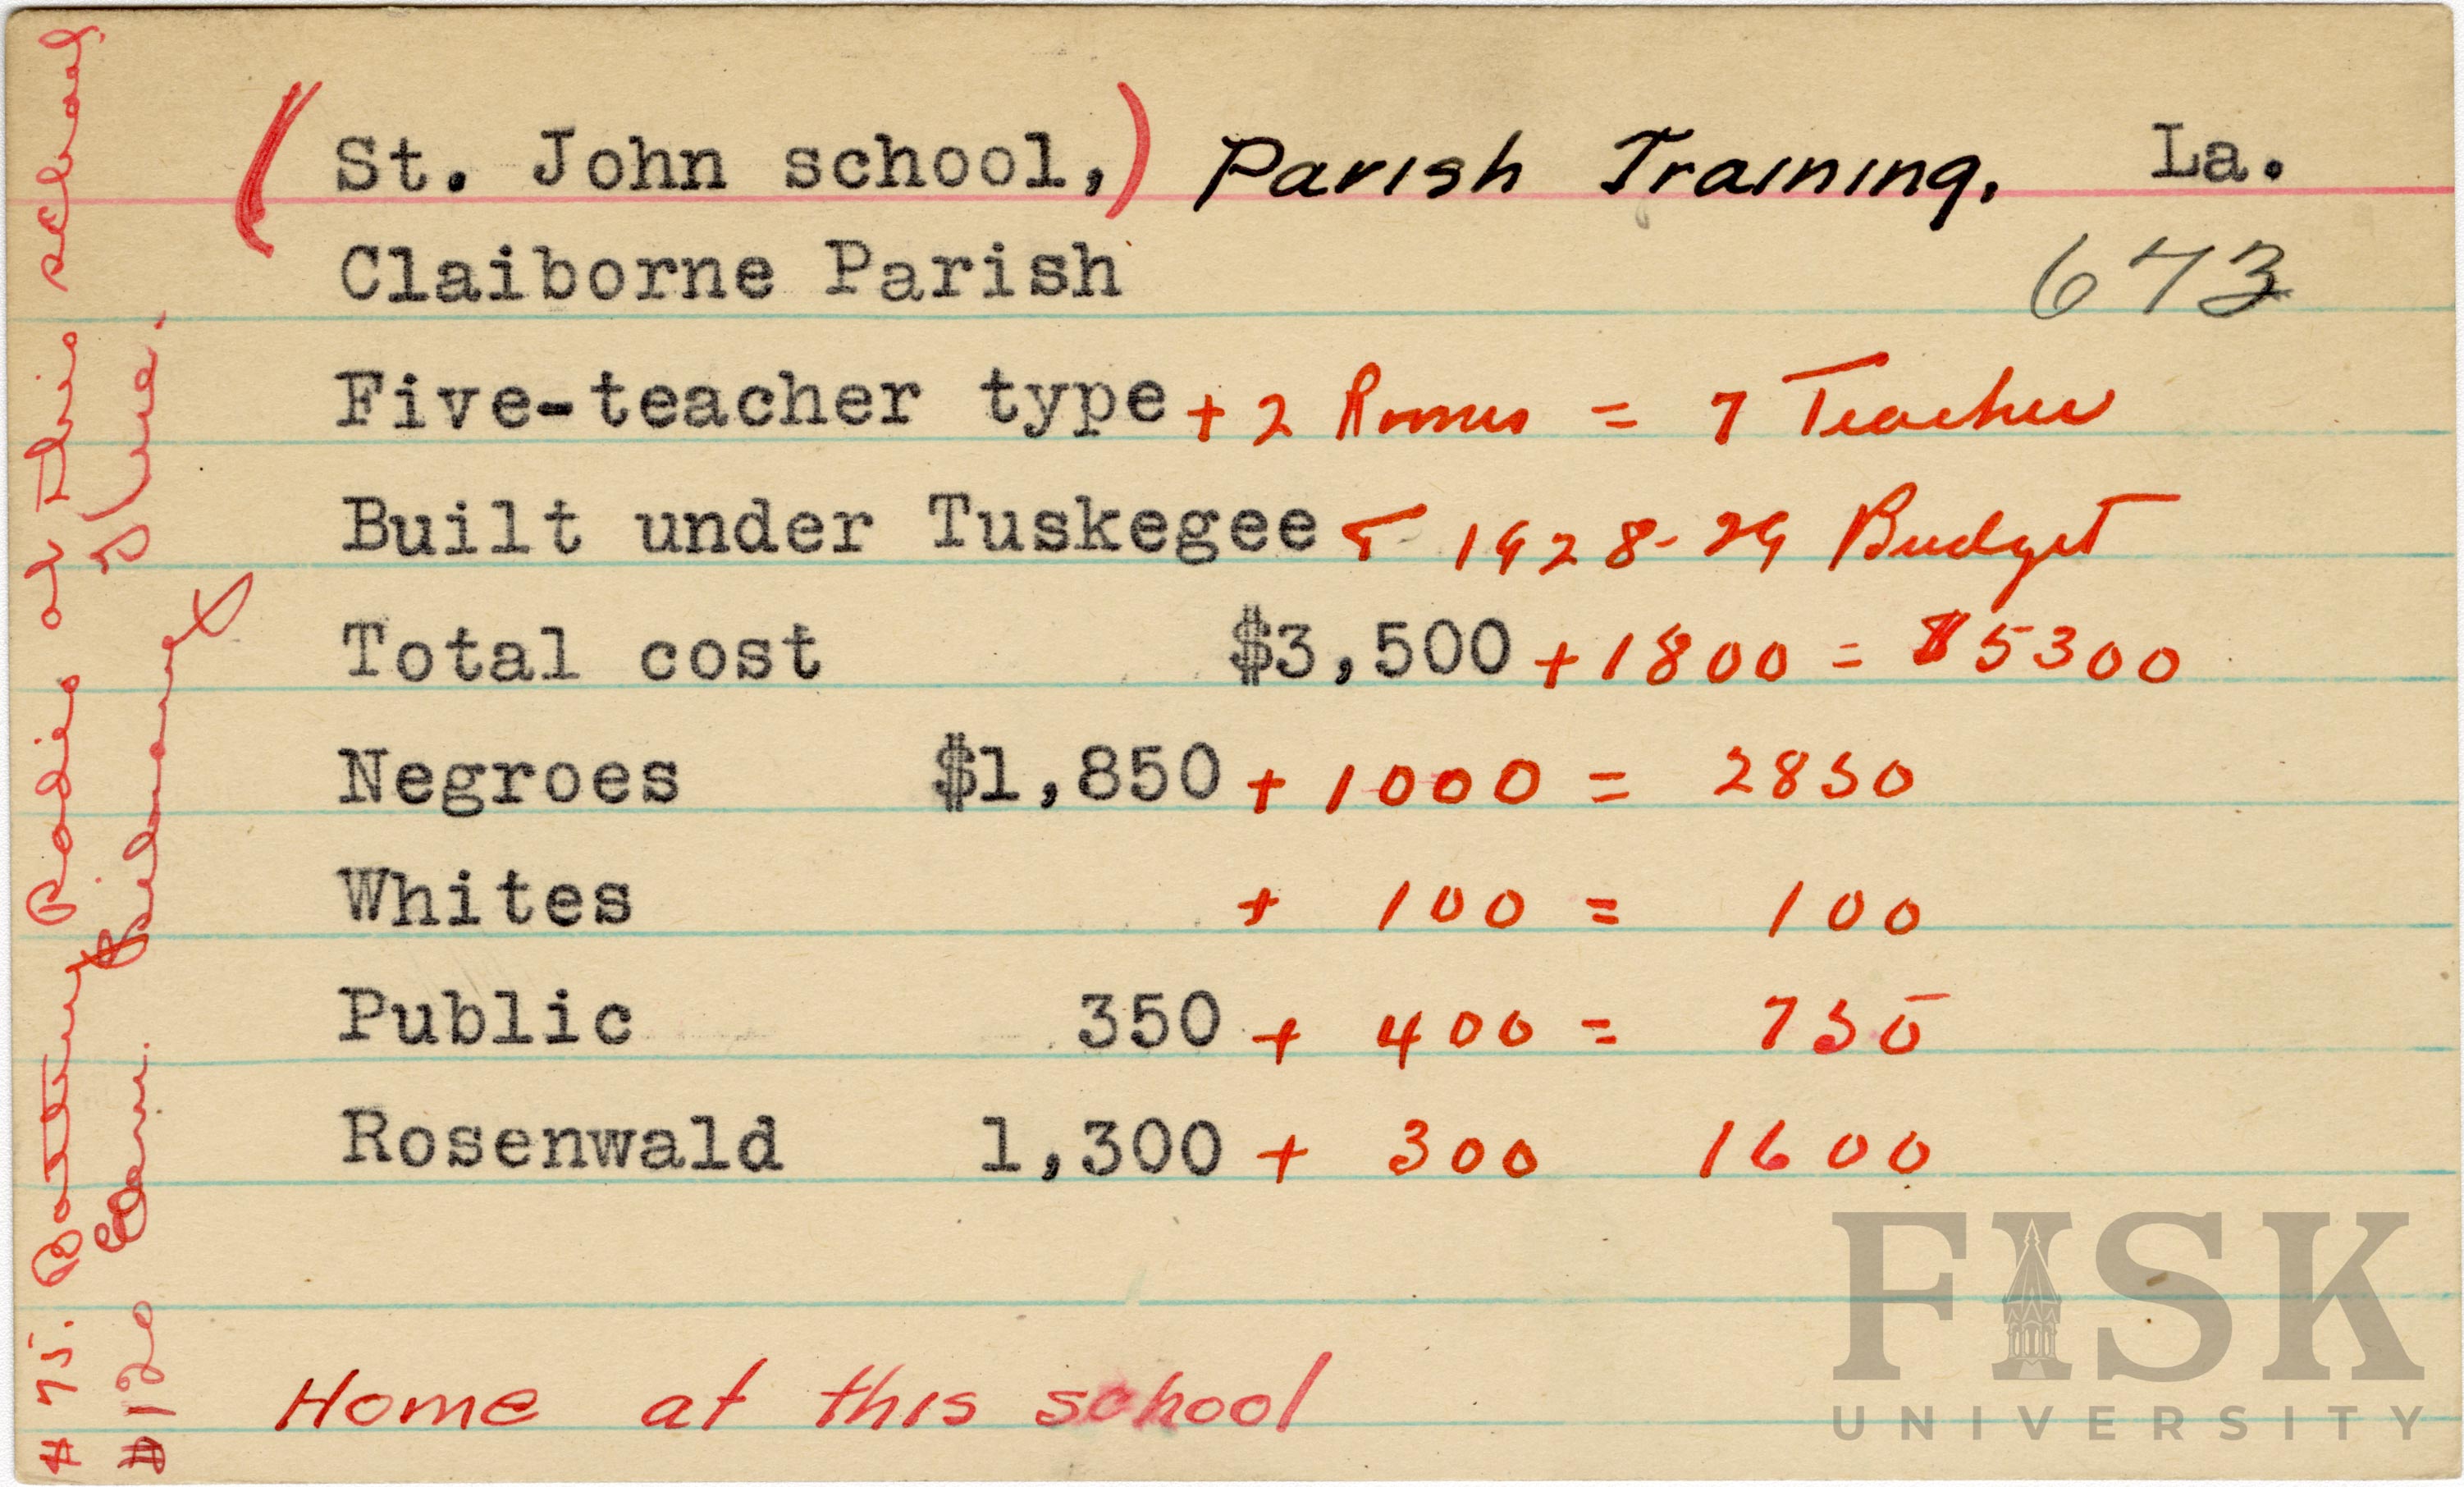 (St. John school,) Parish Training. La.
Claiborne Parish 673
Five-teacher type + 2 Rooms = 7 Teacher
Built under Tuskegee & 1928-29 Budget
Total cost $3,500 + 1800 = $5300
Negroes $1,850 + 1000 = 2850
Whites + 100 = 100
Public 350 + 400 = 750
Rosenwald 1,300 + 300 1600
Home at this school
#75. Battery Radio at this school
#120 Elem.
FISK
UNIVERSITY